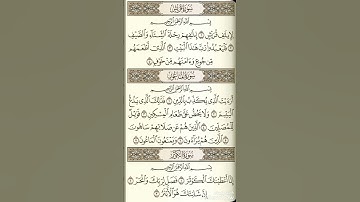 سُورَةُ قُرَيْشٍ
بِسْمِ اللَّهِ الرَّحْمَٰنِ الرَّحِيمِ
لِإِيلَافِ قُرَيْشٍ ۝١ إِۦلَافِهِمْ رِحْلَةَ الشِّتَاءِ وَالصَّيْفِ
۝٢ فَلْيَعْبُدُوا رَبَّ هَٰذَا الْبَيْتِ ۝٣ الَّذِي أَطْعَمَهُم
مِّن جُوعٍ وَءَامَنَهُم مِّنْ خَوْفٍ ۝٤
سُورَةُ الْمَاعُونِ
بِسْمِ اللَّهِ الرَّحْمَٰنِ الرَّحِيمِ
أَرَءَيْتَ الَّذِي يُكَذِّبُ بِالدِّينِ ۝١ فَذَٰلِكَ الَّذِي يَدُعُّ
الْيَتِيمَ ۝٢ وَلَا يَحُضُّ عَلَىٰ طَعَامِ الْمِسْكِينِ ۝٣ فَوَيْلٌ
لِّلْمُصَلِّينَ ۝٤ الَّذِينَ هُمْ عَن صَلَاتِهِمْ سَاهُونَ
۝٥ الَّذِينَ هُمْ يُرَاءُونَ ۝٦ وَيَمْنَعُونَ الْمَاعُونَ ۝٧
سُورَةُ الْكَوْثَرِ
بِسْمِ اللَّهِ الرَّحْمَٰنِ الرَّحِيمِ
إِنَّا أَعْطَيْنَاكَ الْكَوْثَرَ ۝١ فَصَلِّ لِرَبِّكَ وَانْحَرْ ۝٢
إِنَّ شَانِئَكَ هُوَ الْأَبْتَرُ ۝٣